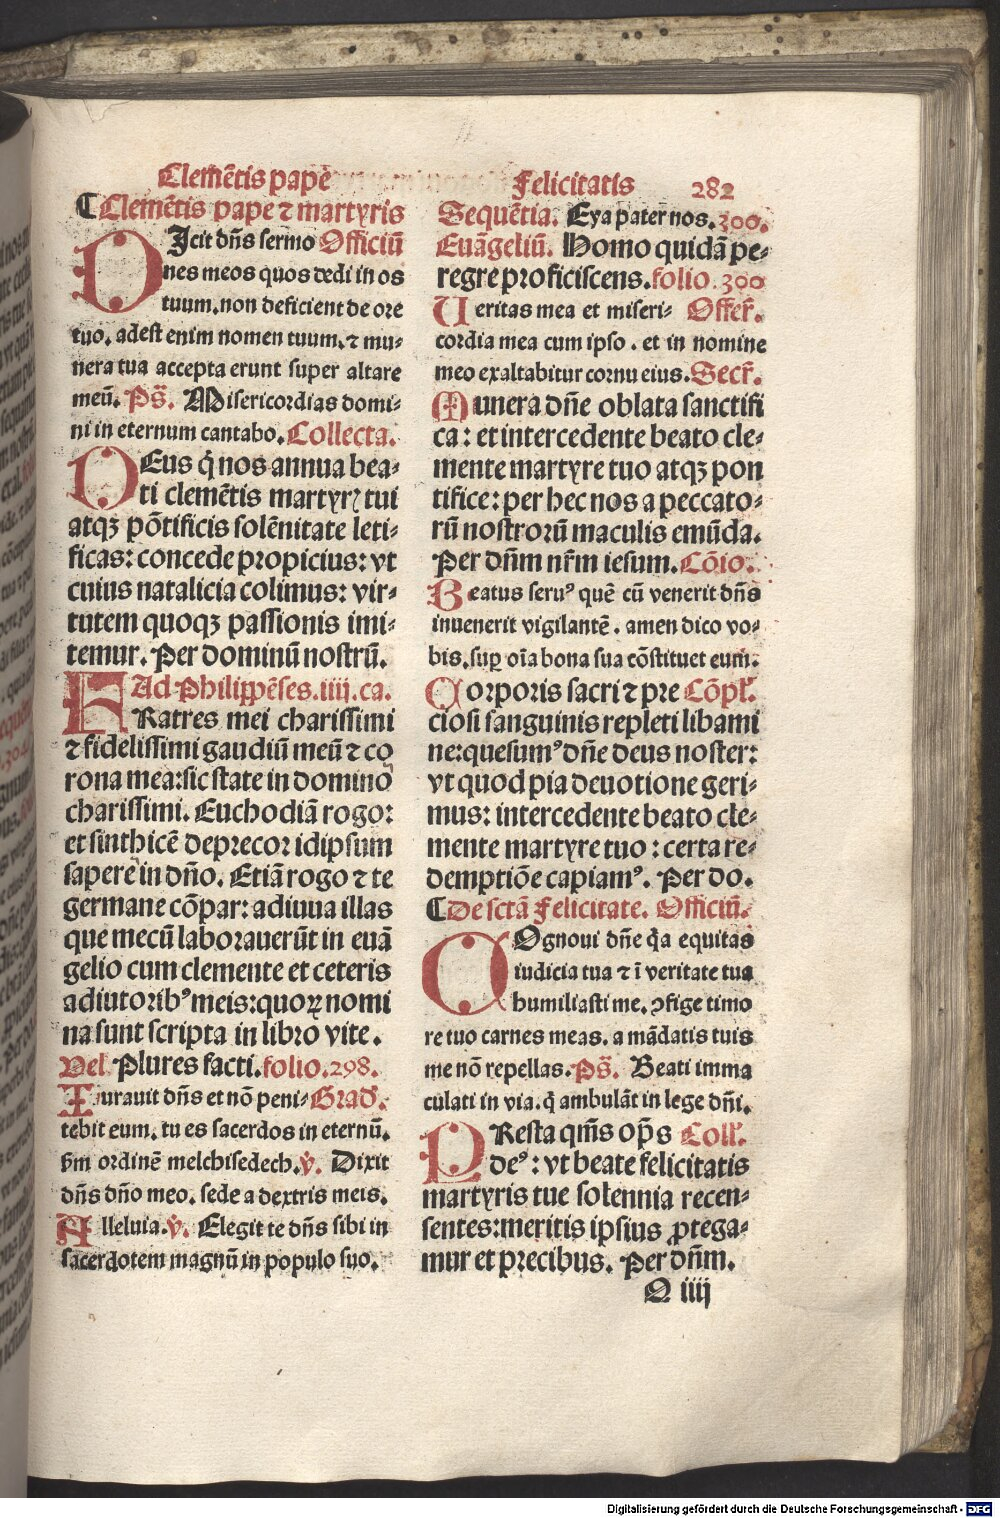 Clemētis pape
Felicitatis 282
¶ Clemētis pape ⁊ martyris
DIcit dn̄s sermo Officiū
nes meos quos dedi in os
tuum. non deficient de ore
tuo. adest enim nomen tuum. ⁊ mu⸗
nera tua accepta erunt super altare
meū. Ps̄. Misericordias domi⸗
ni in eternum cantabo. Collecta.
DEus q̄ nos annua bea⸗
ti clemētis martyrꝭ tui
atqꝫ pōtificis solēnitate leti⸗
ficas: concede propicius: vt
cuius natalicia colimus: vir⸗
tutem quoqꝫ passionis imi⸗
temur. Per dominū nostrū.
Ad Philippēses. iiij. ca.
FRatres mei charissimi
⁊ fidelissimi gaudiū meū ⁊ co
rona mea: sic state in domino
charissimi. Euchodiā rogo:
et sinthicē deprecor idipsum
sapere in dn̄o. Etiā rogo ⁊ te
germane cōpar: adiuua illas
que mecū laborauerūt in euā
gelio cum clemente et ceteris
adiutoribꝰ meis: quoꝝ nomi
na sunt scripta in libro vite.
Vel Plures facti. folio. 298.
Iurauit dn̄s et nō peni⸗ Grad̄.
tebit eum. tu es sacerdos in eternū.
s̄m ordinē melchisedech. v̄. Dixit
dn̄s dn̄o meo. sede a dextris meis.
Alleluia. v̄. Elegit te dn̄s sibi in
sacerdotem magnū in populo suo.
Sequētia. Eya pater nos. 300.
Euāgeliū. Homo quidā pe⸗
regre proficiscens. folio. 300
Ueritas mea et miseri⸗ Offer̄.
cordia mea cum ipso. et in nomine
meo exaltabitur cornu eius. Secr̄.
Munera dn̄e oblata sanctifi
ca: et intercedente beato cle⸗
mente martyre tuo atqꝫ pon
tifice: per hec nos a peccato⸗
rū nostrorū maculis emūda.
Per dn̄m nr̄m iesum. Cōio.
Beatus seruꝰ quē cū venerit dn̄s
inuenerit vigilantē. amen dico vo⸗
bis. suꝑ oīa bona sua cōstituet eum.
Corporis sacri ⁊ pre Cōpl̄.
ciosi sanguinis repleti libami
ne: quesumꝰ dn̄e deus noster:
vt quod pia deuotione geri⸗
mus: intercedente beato cle⸗
mente martyre tuo: certa re⸗
demptiōe capiamꝰ. Per do.
¶ De sctā Felicitate. Officiū.
COgnoui dn̄e q̄a equitas
iudicia tua ⁊ ī veritate tua
humiliasti me. ꝯfige timo
re tuo carnes meas. a mādatis tuis
me nō repellas. Ps̄. Beati imma
culati in via. q̄ ambulāt in lege dn̄i.
PResta qm̄s op̄s Coll̄.
deꝰ: vt beate felicitatis
martyris tue solennia recen⸗
sentes: meritis ipsius ꝓtega⸗
mur et precibus. Per dn̄m.
O iiij
Digitalisierung gefördert durch die Deutsche Forschungsgemeinschaft - DFG